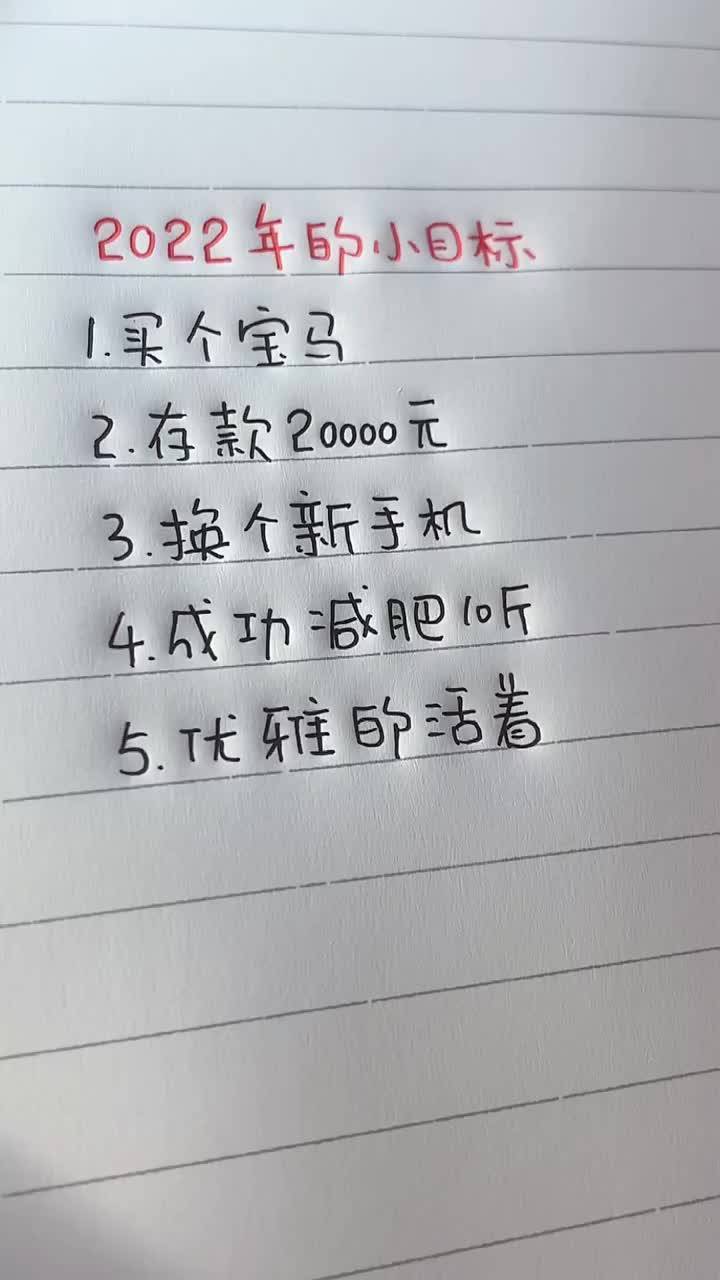 2022年的小目标
1.买个宝马
2.存款20000元
3.换个新手机
4.成功减肥10斤
5.优雅的活着